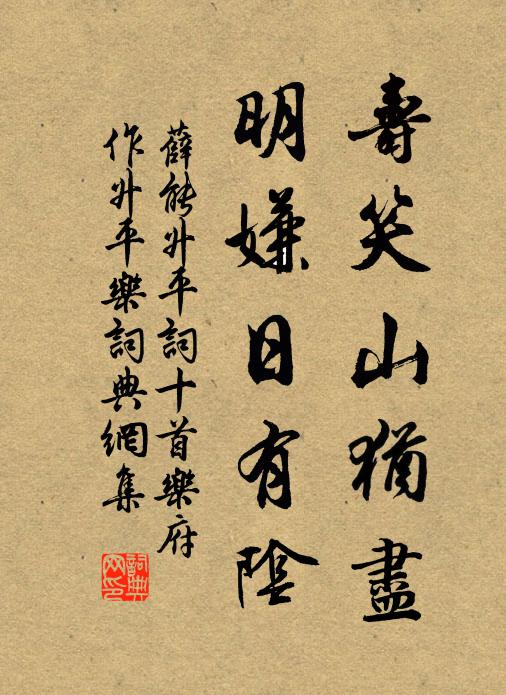 壽笑山猶盡
明嫌日有陰
薛能升平詞十首樂府
作升平樂詞典網集
詞典網印